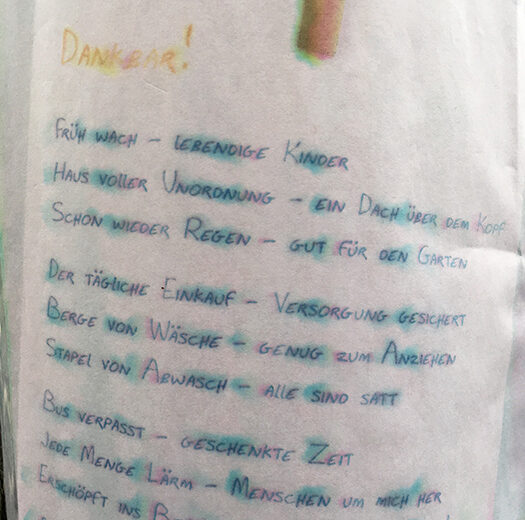 DANKBAR!
FRÜH WACH – LEBENDIGE KINDER
HAUS VOLLER UNORDNUNG – EIN DACH ÜBER DEM KOPF
SCHON WIEDER REGEN – GUT FÜR DEN GARTEN
DER TÄGLICHE EINKAUF – VERSORGUNG GESICHERT
BERGE VON WÄSCHE – GENUG ZUM ANZIEHEN
STAPEL VON ABWASCH – ALLE SIND SATT
BUS VERPASST – GESCHENKTE ZEIT
JEDE MENGE LÄRM – MENSCHEN UM MICH HER
ERSCHÖPFT INS